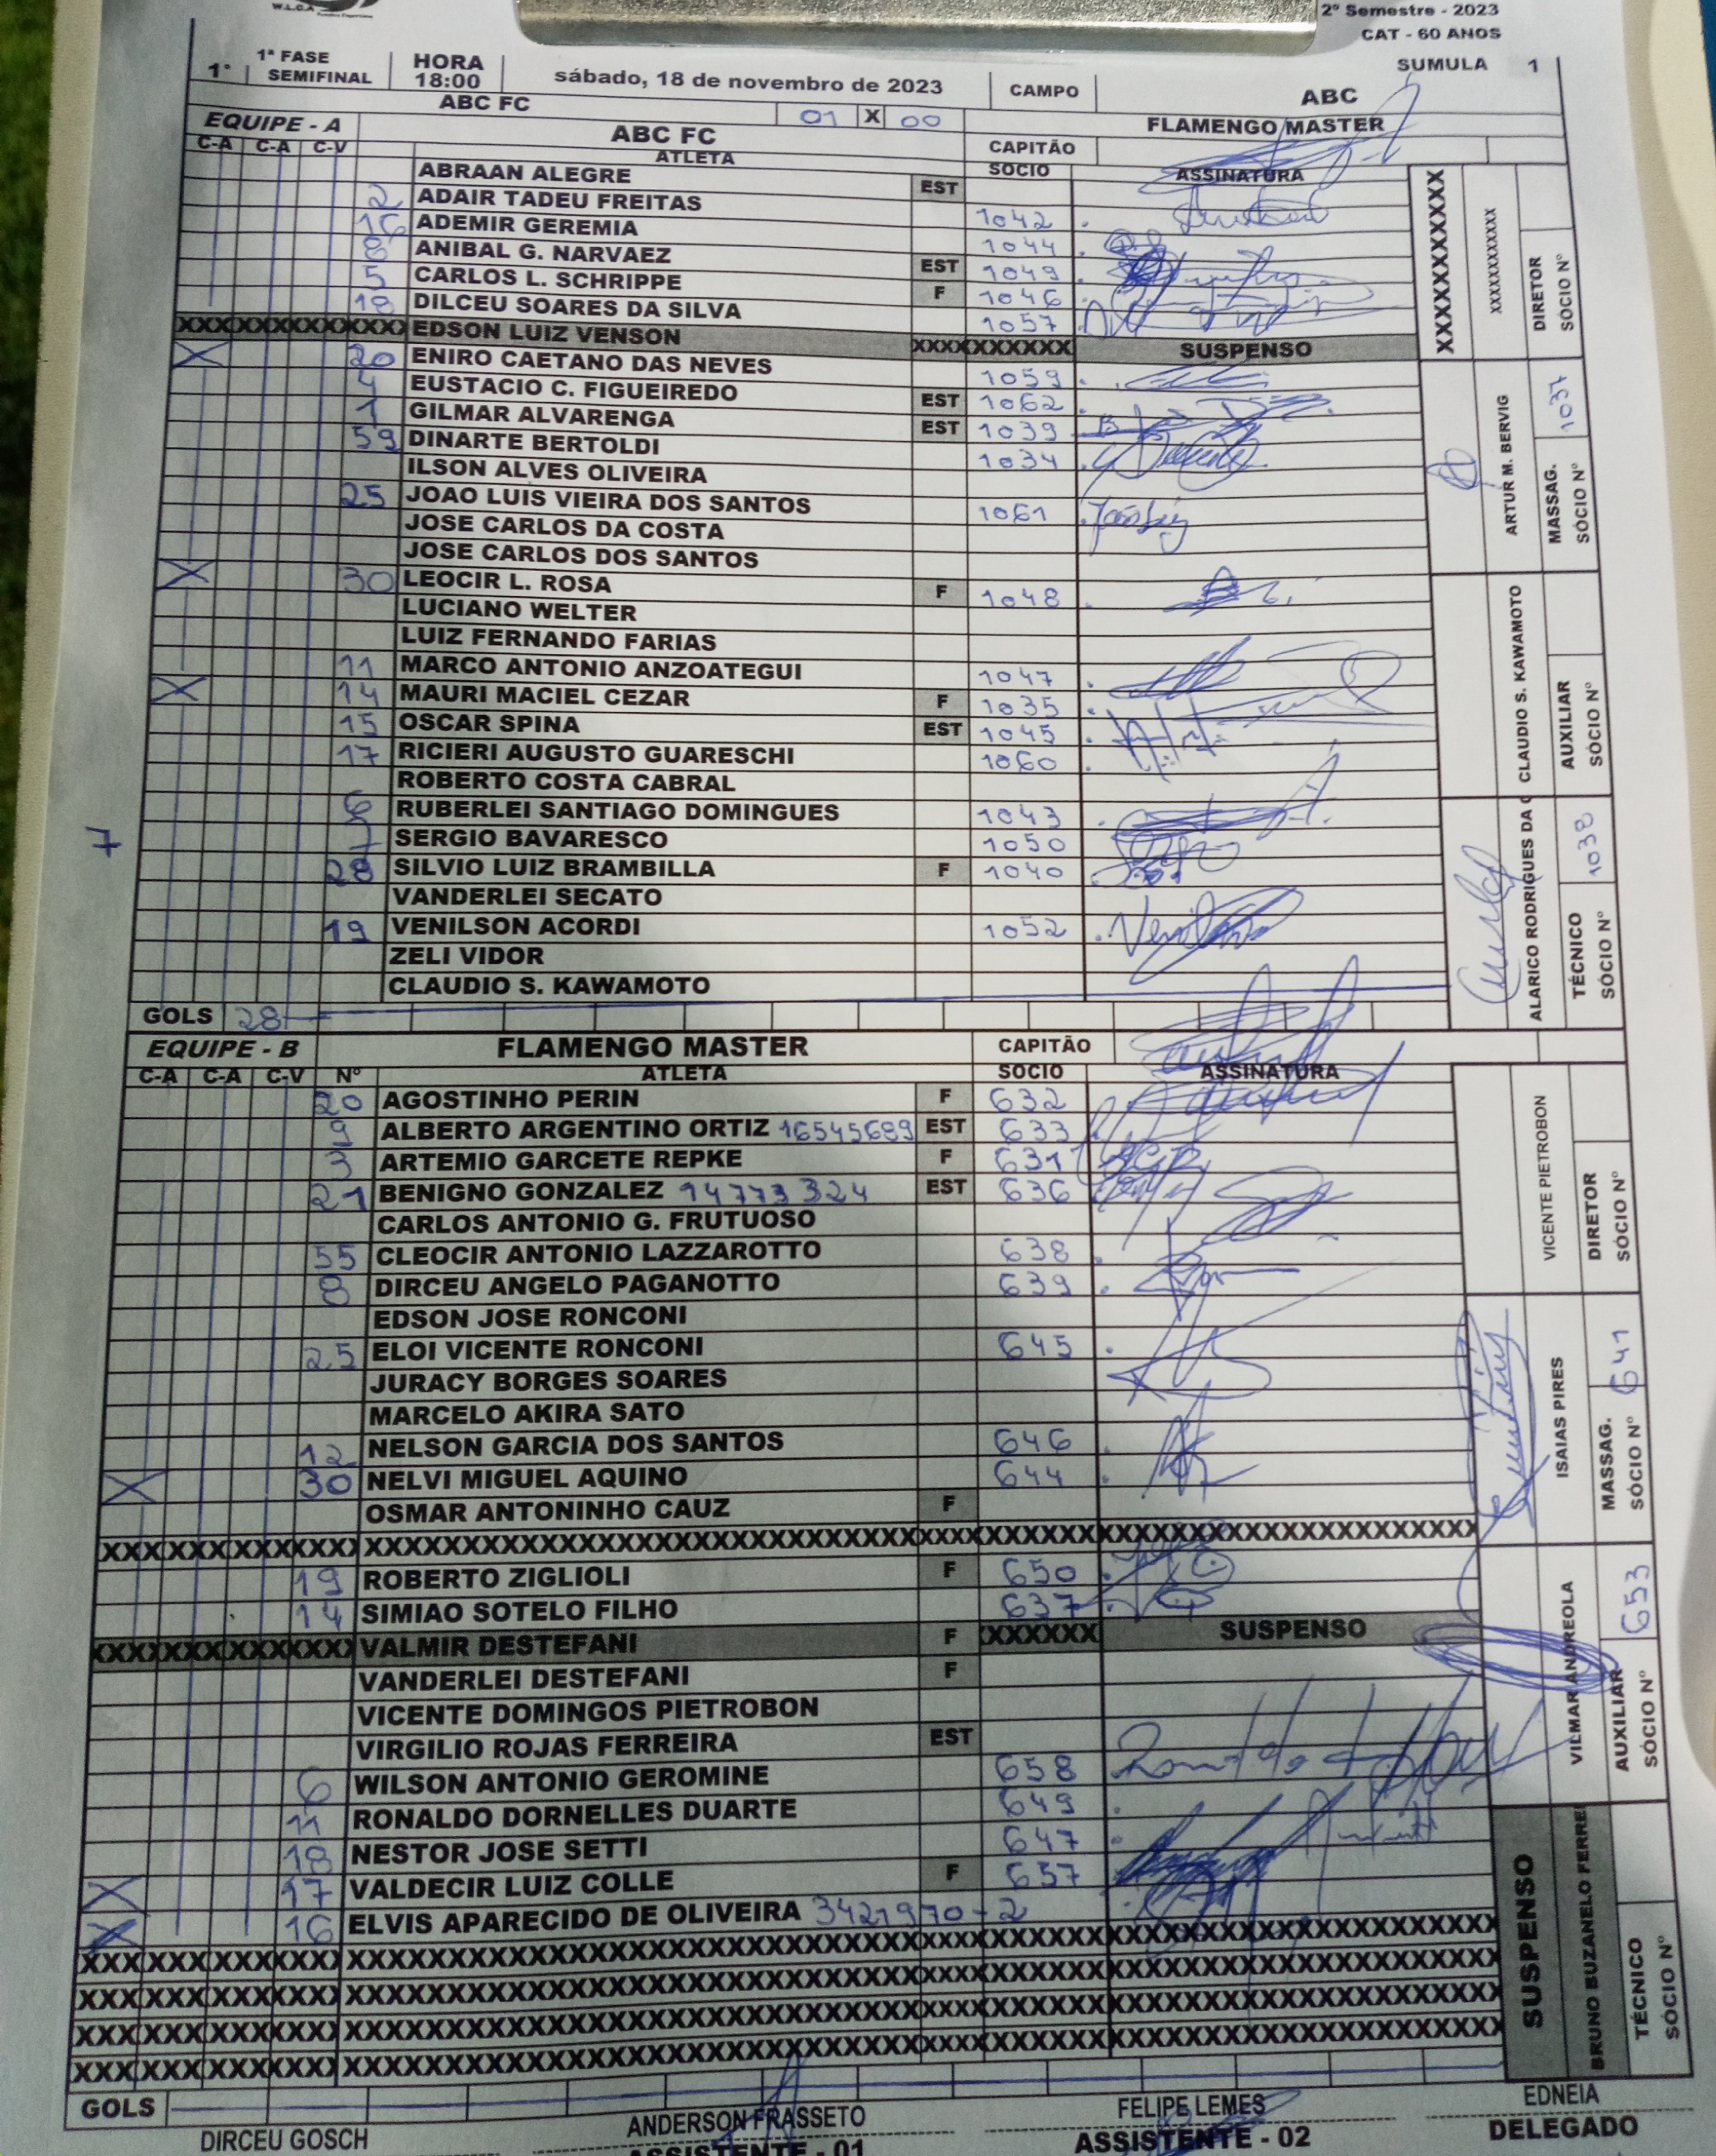 W.L.C.A
2º Semestre - 2023
CAT - 60 ANOS
1ª FASE
1º SEMIFINAL
HORA
18:00
sábado, 18 de novembro de 2023
CAMPO
SUMULA 1
ABC
ABC FC 01 X 00 FLAMENGO MASTER
EQUIPE - A ABC FC CAPITÃO
C-A C-A C-V ATLETA SOCIO ASSINATURA
ABRAAN ALEGRE EST
2 ADAIR TADEU FREITAS 1042
16 ADEMIR GEREMIA 1044
8 ANIBAL G. NARVAEZ EST 1049
5 CARLOS L. SCHRIPPE F 1046
18 DILCEU SOARES DA SILVA 1057
XXXXXXXXXXXXXX EDSON LUIZ VENSON XXXXXXXXXX SUSPENSO
X 20 ENIRO CAETANO DAS NEVES 1059
4 EUSTACIO C. FIGUEIREDO EST 1062
1 GILMAR ALVARENGA EST 1039
59 DINARTE BERTOLDI 1034
ILSON ALVES OLIVEIRA
25 JOAO LUIS VIEIRA DOS SANTOS 1061
JOSE CARLOS DA COSTA
JOSE CARLOS DOS SANTOS
X 30 LEOCIR L. ROSA F 1048
LUCIANO WELTER
LUIZ FERNANDO FARIAS
11 MARCO ANTONIO ANZOATEGUI 1047
X 14 MAURI MACIEL CEZAR F 1035
15 OSCAR SPINA EST 1045
17 RICIERI AUGUSTO GUARESCHI 1060
ROBERTO COSTA CABRAL
6 RUBERLEI SANTIAGO DOMINGUES 1043
7 7 SERGIO BAVARESCO 1050
28 SILVIO LUIZ BRAMBILLA F 1040
VANDERLEI SECATO
19 VENILSON ACORDI 1052
ZELI VIDOR
CLAUDIO S. KAWAMOTO
GOLS 28
XXXXXXXXXXXX
XXXXXXXXXXX
DIRETOR
SÓCIO Nº
ARTUR M. BERVIG
MASSAG.
SÓCIO Nº 1037
CLAUDIO S. KAWAMOTO
AUXILIAR
SÓCIO Nº
ALARICO RODRIGUES DA
TÉCNICO
SÓCIO Nº 1038
EQUIPE - B FLAMENGO MASTER CAPITÃO
C-A C-A C-V Nº ATLETA SOCIO ASSINATURA
20 AGOSTINHO PERIN F 632
9 ALBERTO ARGENTINO ORTIZ 16545689 EST 633
3 ARTEMIO GARCETE REPKE F 631
21 BENIGNO GONZALEZ 14773324 EST 636
CARLOS ANTONIO G. FRUTUOSO
55 CLEOCIR ANTONIO LAZZAROTTO 638
8 DIRCEU ANGELO PAGANOTTO 639
EDSON JOSE RONCONI
25 ELOI VICENTE RONCONI 645
JURACY BORGES SOARES
MARCELO AKIRA SATO
12 NELSON GARCIA DOS SANTOS 646
X 30 NELVI MIGUEL AQUINO 644
OSMAR ANTONINHO CAUZ F
19 ROBERTO ZIGLIOLI F 650
14 SIMIAO SOTELO FILHO 637
XXXXXXXXXXXXXX VALMIR DESTEFANI F XXXXXX SUSPENSO
VANDERLEI DESTEFANI F
VICENTE DOMINGOS PIETROBON
VIRGILIO ROJAS FERREIRA EST
6 WILSON ANTONIO GEROMINE 658
11 RONALDO DORNELLES DUARTE 649
18 NESTOR JOSE SETTI 647
X 17 VALDECIR LUIZ COLLE F 657
X 16 ELVIS APARECIDO DE OLIVEIRA 3421970-2
GOLS
VICENTE PIETROBON
DIRETOR
SÓCIO Nº
ISAIAS PIRES
MASSAG.
SÓCIO Nº 641
VILMAR ANDREOLA
AUXILIAR
SÓCIO Nº 653
SUSPENSO
BRUNO BUZANELO FERRE
TÉCNICO
SÓCIO Nº
DIRCEU GOSCH
ANDERSON FRASSETO
ASSISTENTE - 01
FELIPE LEMES
ASSISTENTE - 02
EDNEIA
DELEGADO